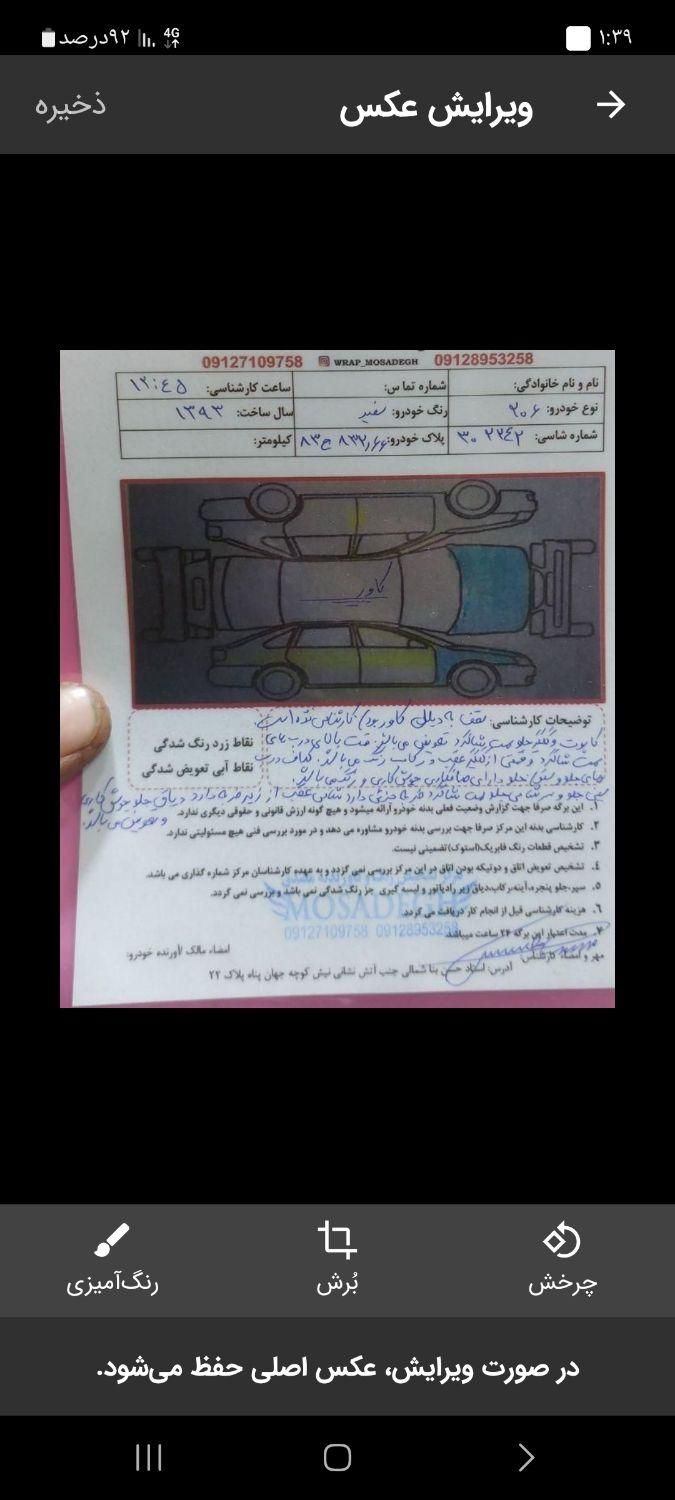 ۱:۳۹
۹۲درصد 4G
ویرایش عکس
ذخیره
09127109758 WRAP_MOSADEGH 09128953258
نام و نام خانوادگی: شماره تماس: ساعت کارشناسی: ۱۲:٤۵
نوع خودرو: ۲۰۶ رنگ خودرو: سفید سال ساخت: ۱۳۹۳
شماره شاسی: پلاک خودرو: کیلومتر:
کاور
توضیحات کارشناسی: سقف به دلیل کاور بودن کارشناسی نشده است.
کاپوت و گلگیر جلو سمت شاگرد تعویض می‌باشد. قسمت بالای درب های
سمت شاگرد و قسمتی از گلگیر عقب و رکاب رنگ می‌باشد.
نقاط زرد رنگ شدگی
نقاط آبی تعویض شدگی
۱. این برگه صرفا جهت گزارش وضعیت فعلی بدنه خودرو ارائه میشود و هیچ گونه ارزش قانونی و حقوقی دیگری ندارد.
۲. کارشناسی بدنه این مرکز صرفا جهت بررسی بدنه خودرو مشاوره می دهد و در مورد بررسی فنی هیچ مسئولیتی ندارد.
۳. تشخیص قطعات رنگ فابریک(استوک)تضمینی نیست.
٤. تشخیص تعویض اتاق و دوتیکه بودن اتاق در این مرکز بررسی نمی گردد و به عهده کارشناسان مرکز شماره گذاری می باشد.
۵. سپر،جلو پنجره،آینه،رکاب،دیاق زیر رادیاتور و لیسه گیری جز رنگ شدگی نمی باشد و بررسی نمی گردد.
۶. هزینه کارشناسی قبل از انجام کار دریافت می گردد.
۷. مدت اعتبار این برگه ۲۴ ساعت میباشد.
MOSADEGH
09127109758 09128953258
مهر و امضاء کارشناس: امضاء مالک /آورنده خودرو:
آدرس: استاد حسن بنا شمالی جنب آتش نشانی نبش کوچه جهان پناه پلاک ۲۲
چرخش
بُرش
رنگ‌آمیزی
در صورت ویرایش، عکس اصلی حفظ می‌شود.